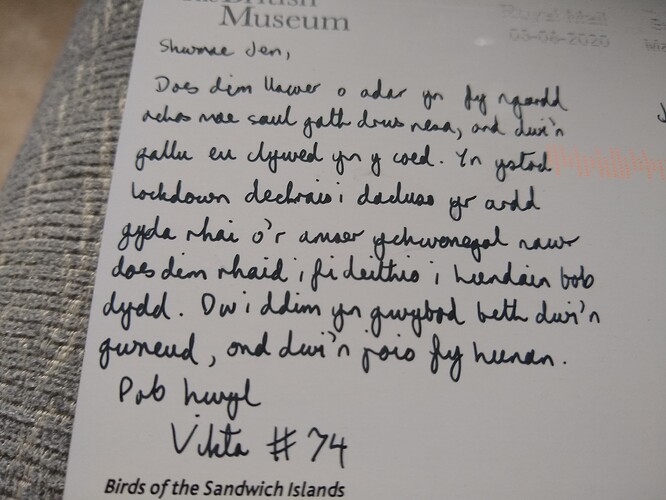 British
Museum
Royal Mail
05-08-2020
Shwmae Jen,
Does dim llawer o adar yn fy ngardd
achos mae sawl gath drws nesa, ond dwi'n
gallu eu clywed yn y coed. Yn ystod
lockdown dechrais i dacluso yr ardd
gyda rhai o'r amser ychwanegol nawr
does dim rhaid i fi deithio i Lundain bob
dydd. Dw i ddim yn gwybod beth dwi'n
gwneud, ond dwi'n joio fy hunan.
Pob hwyl
Vikta #74
Birds of the Sandwich Islands